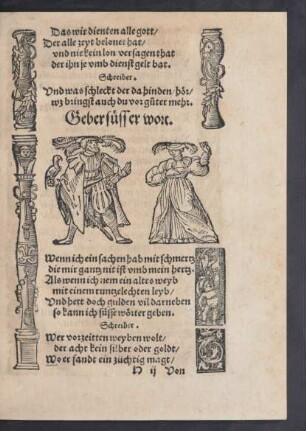 Das wir dienten alle gott/
Der alle zeyt belonet hat/
vnd nie kein lon versagen that
der ihn je vmb dienst gelt bat.
Schreiber.
Vnd was schleckt der da hinden/hör/
wz bringst auch du vor güter mehr.
Geber süsser wort.
Wenn ich ein sachen hab mit schmertz
die mir gantz nit ist vmb mein hertz.
Als wenn ich nem ein altes weyb
mit einem runtzelechten leyb/
Vnd hett doch gulden vil darneben
so kann ich süsse wörter geben.
Schreiber.
Wer vorzeitten weyben wolt/
der acht kein silber oder goldt/
Wo er fandt ein züchtig magt/
H ij Von